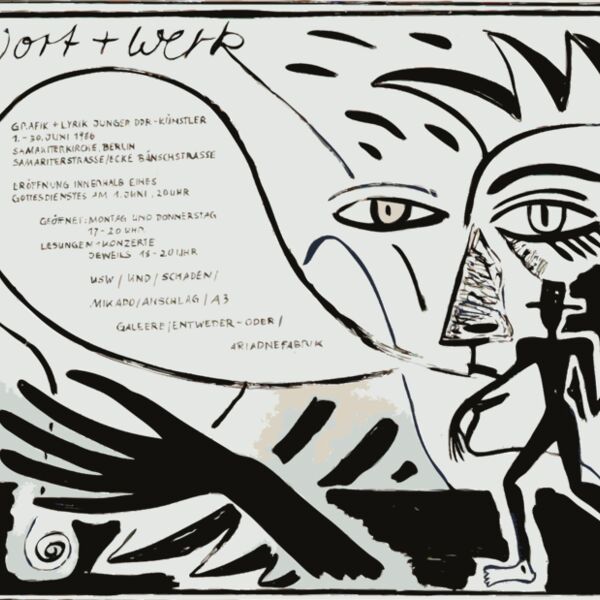 wort + werk
GRAFIK + LYRIK JUNGER DDR-KÜNSTLER
1. - 30. JUNI 1986
SAMARITERKIRCHE, BERLIN
SAMARITERSTRASSE/ECKE BÄNSCHSTRASSE
ERÖFFNUNG INNERHALB EINES
GOTTESDIENSTES AM 1. JUNI, 20 UHR
GEÖFFNET: MONTAG UND DONNERSTAG
17 - 20 UHR
LESUNGEN + KONZERTE
JEWEILS 18 - 20 UHR
USW / UND / SCHADEN /
MIKADO / ANSCHLAG / A3
GALEERE / ENTWEDER - ODER /
ARIADNEFABRIK